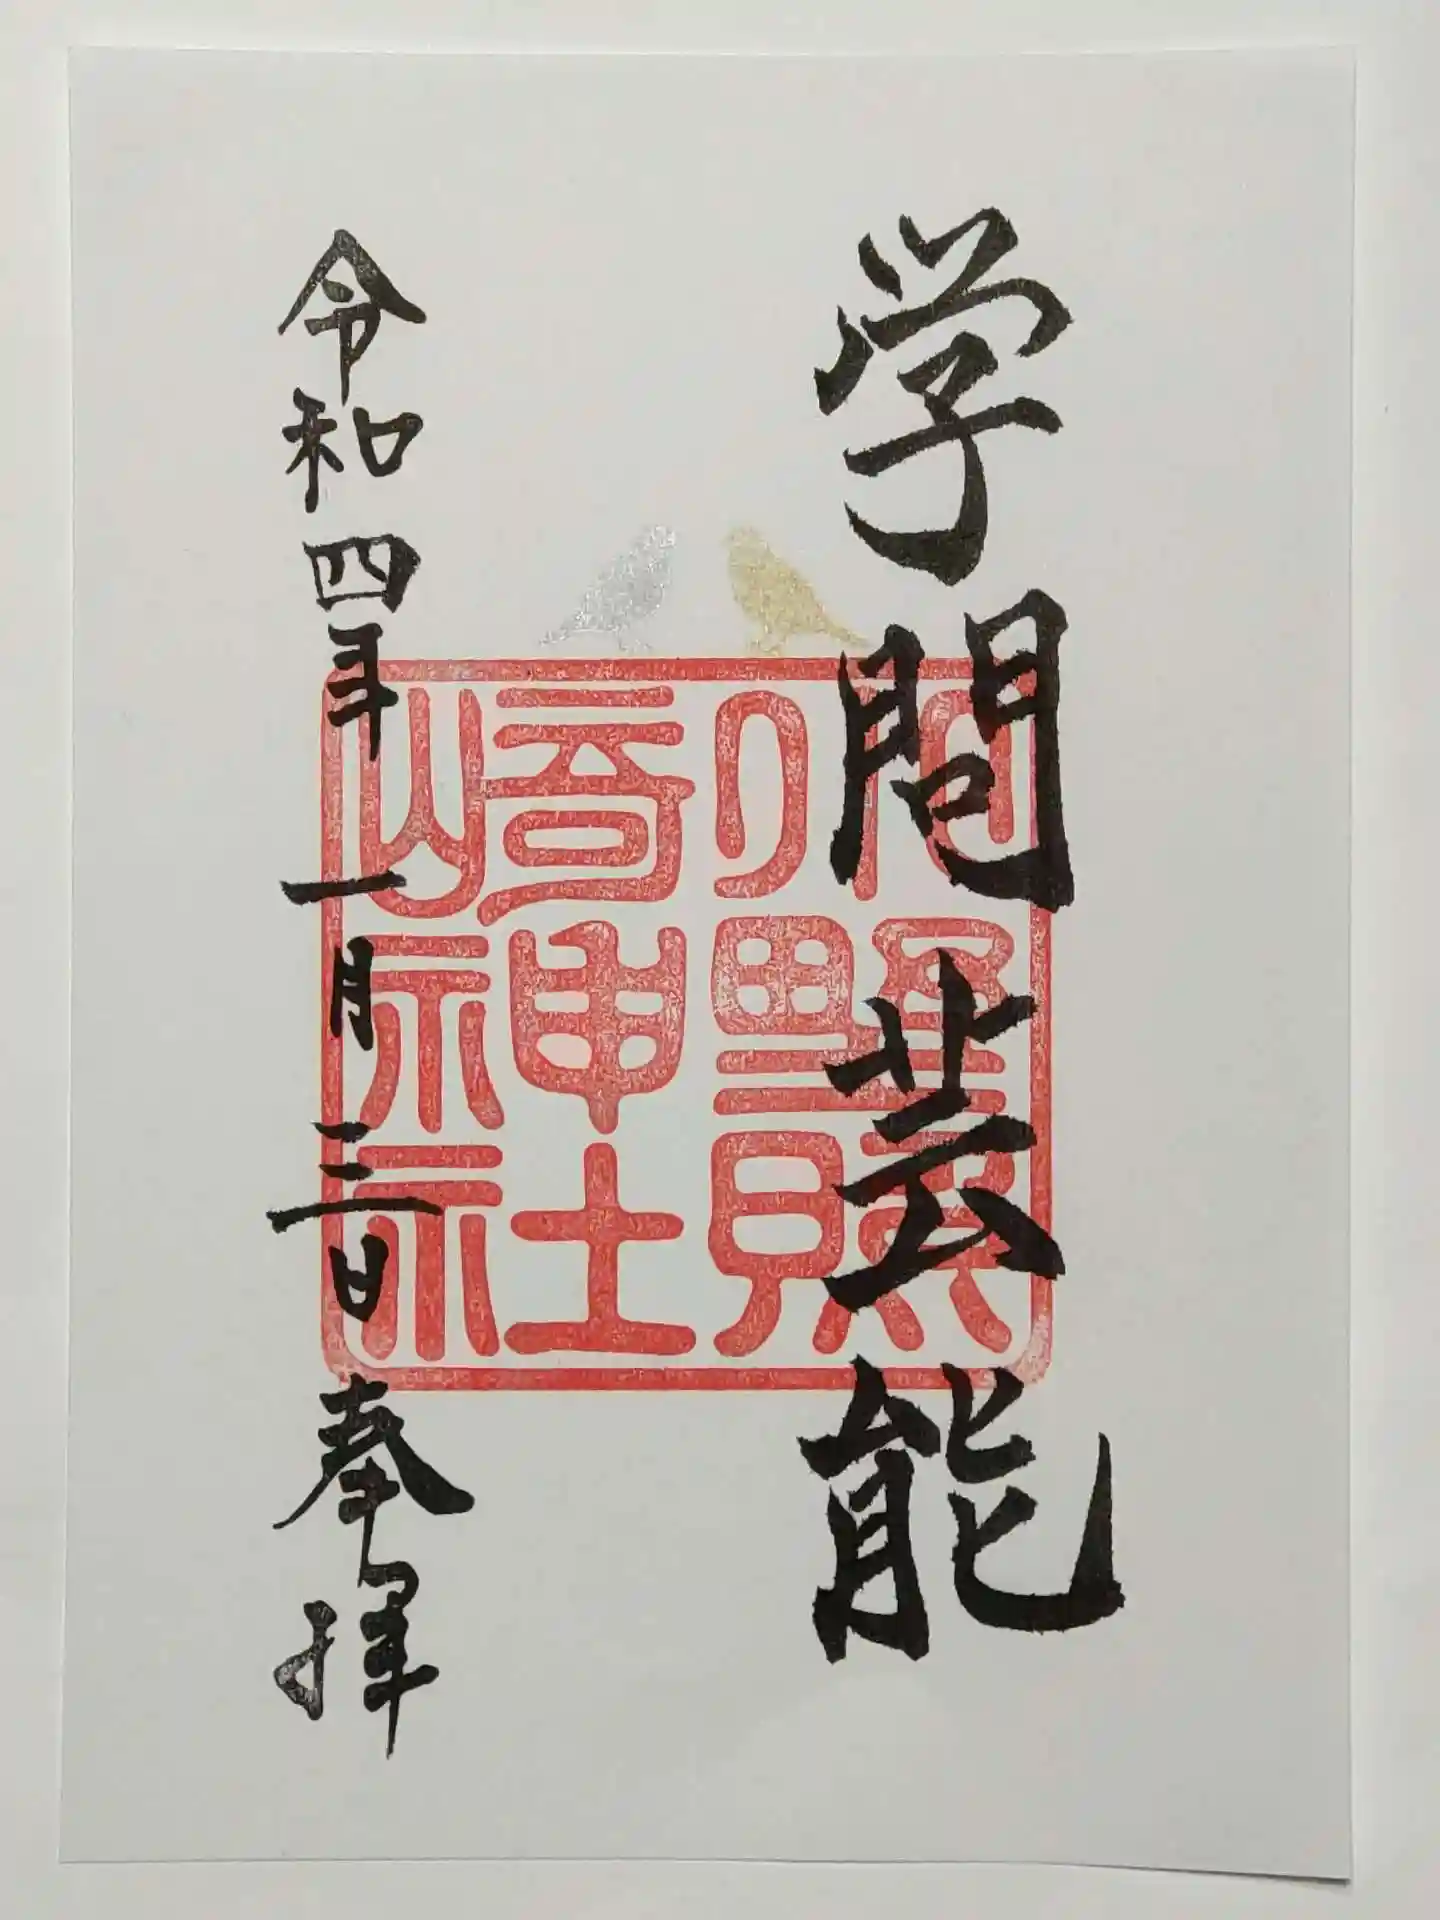 学問芸能
小野照
崎神社
令和四年一月三日 奉拝